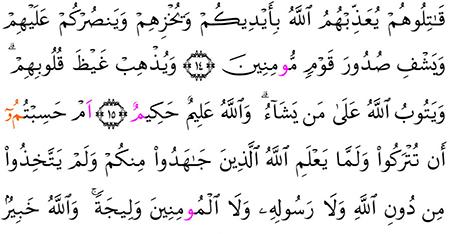 قَٰتِلُوهُمْ يُعَذِّبْهُمُ ٱللَّهُ بِأَيْدِيكُمْ وَيُخْزِهِمْ وَيَنصُرْكُمْ عَلَيْهِمْ
وَيَشْفِ صُدُورَ قَوْمٍ مُّومِنِينَ ١٤ وَيُذْهِبْ غَيْظَ قُلُوبِهِمْ ۗ
وَيَتُوبُ ٱللَّهُ عَلَىٰ مَن يَشَآءُ ۗ وَٱللَّهُ عَلِيمٌ حَكِيمٌ ١٥ اَمْ حَسِبْتُمُۥٓ
أَن تُتْرَكُوا۟ وَلَمَّا يَعْلَمِ ٱللَّهُ ٱلَّذِينَ جَٰهَدُوا۟ مِنكُمْ وَلَمْ يَتَّخِذُوا۟
مِن دُونِ ٱللَّهِ وَلَا رَسُولِهِۦ وَلَا ٱلْمُومِنِينَ وَلِيجَةً ۚ وَٱللَّهُ خَبِيرٌۢ